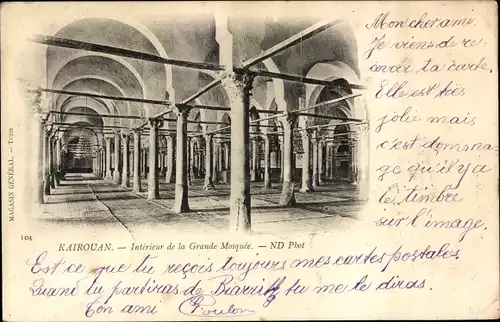 Mon cher ami.
Je viens de re-
cevoir ta carte.
Elle est très
jolie mais
c'est domma-
ge qu'il y a
les timbre
sur l'image.
MAGASIN GÉNÉRAL. — TUNIS
104
KAIROUAN. — Intérieur de la Grande Mosquée. — ND Phot
Est-ce que tu reçois toujours mes cartes postales.
Quand tu partiras de Biarritz tu me le diras.
Ton ami Poulon